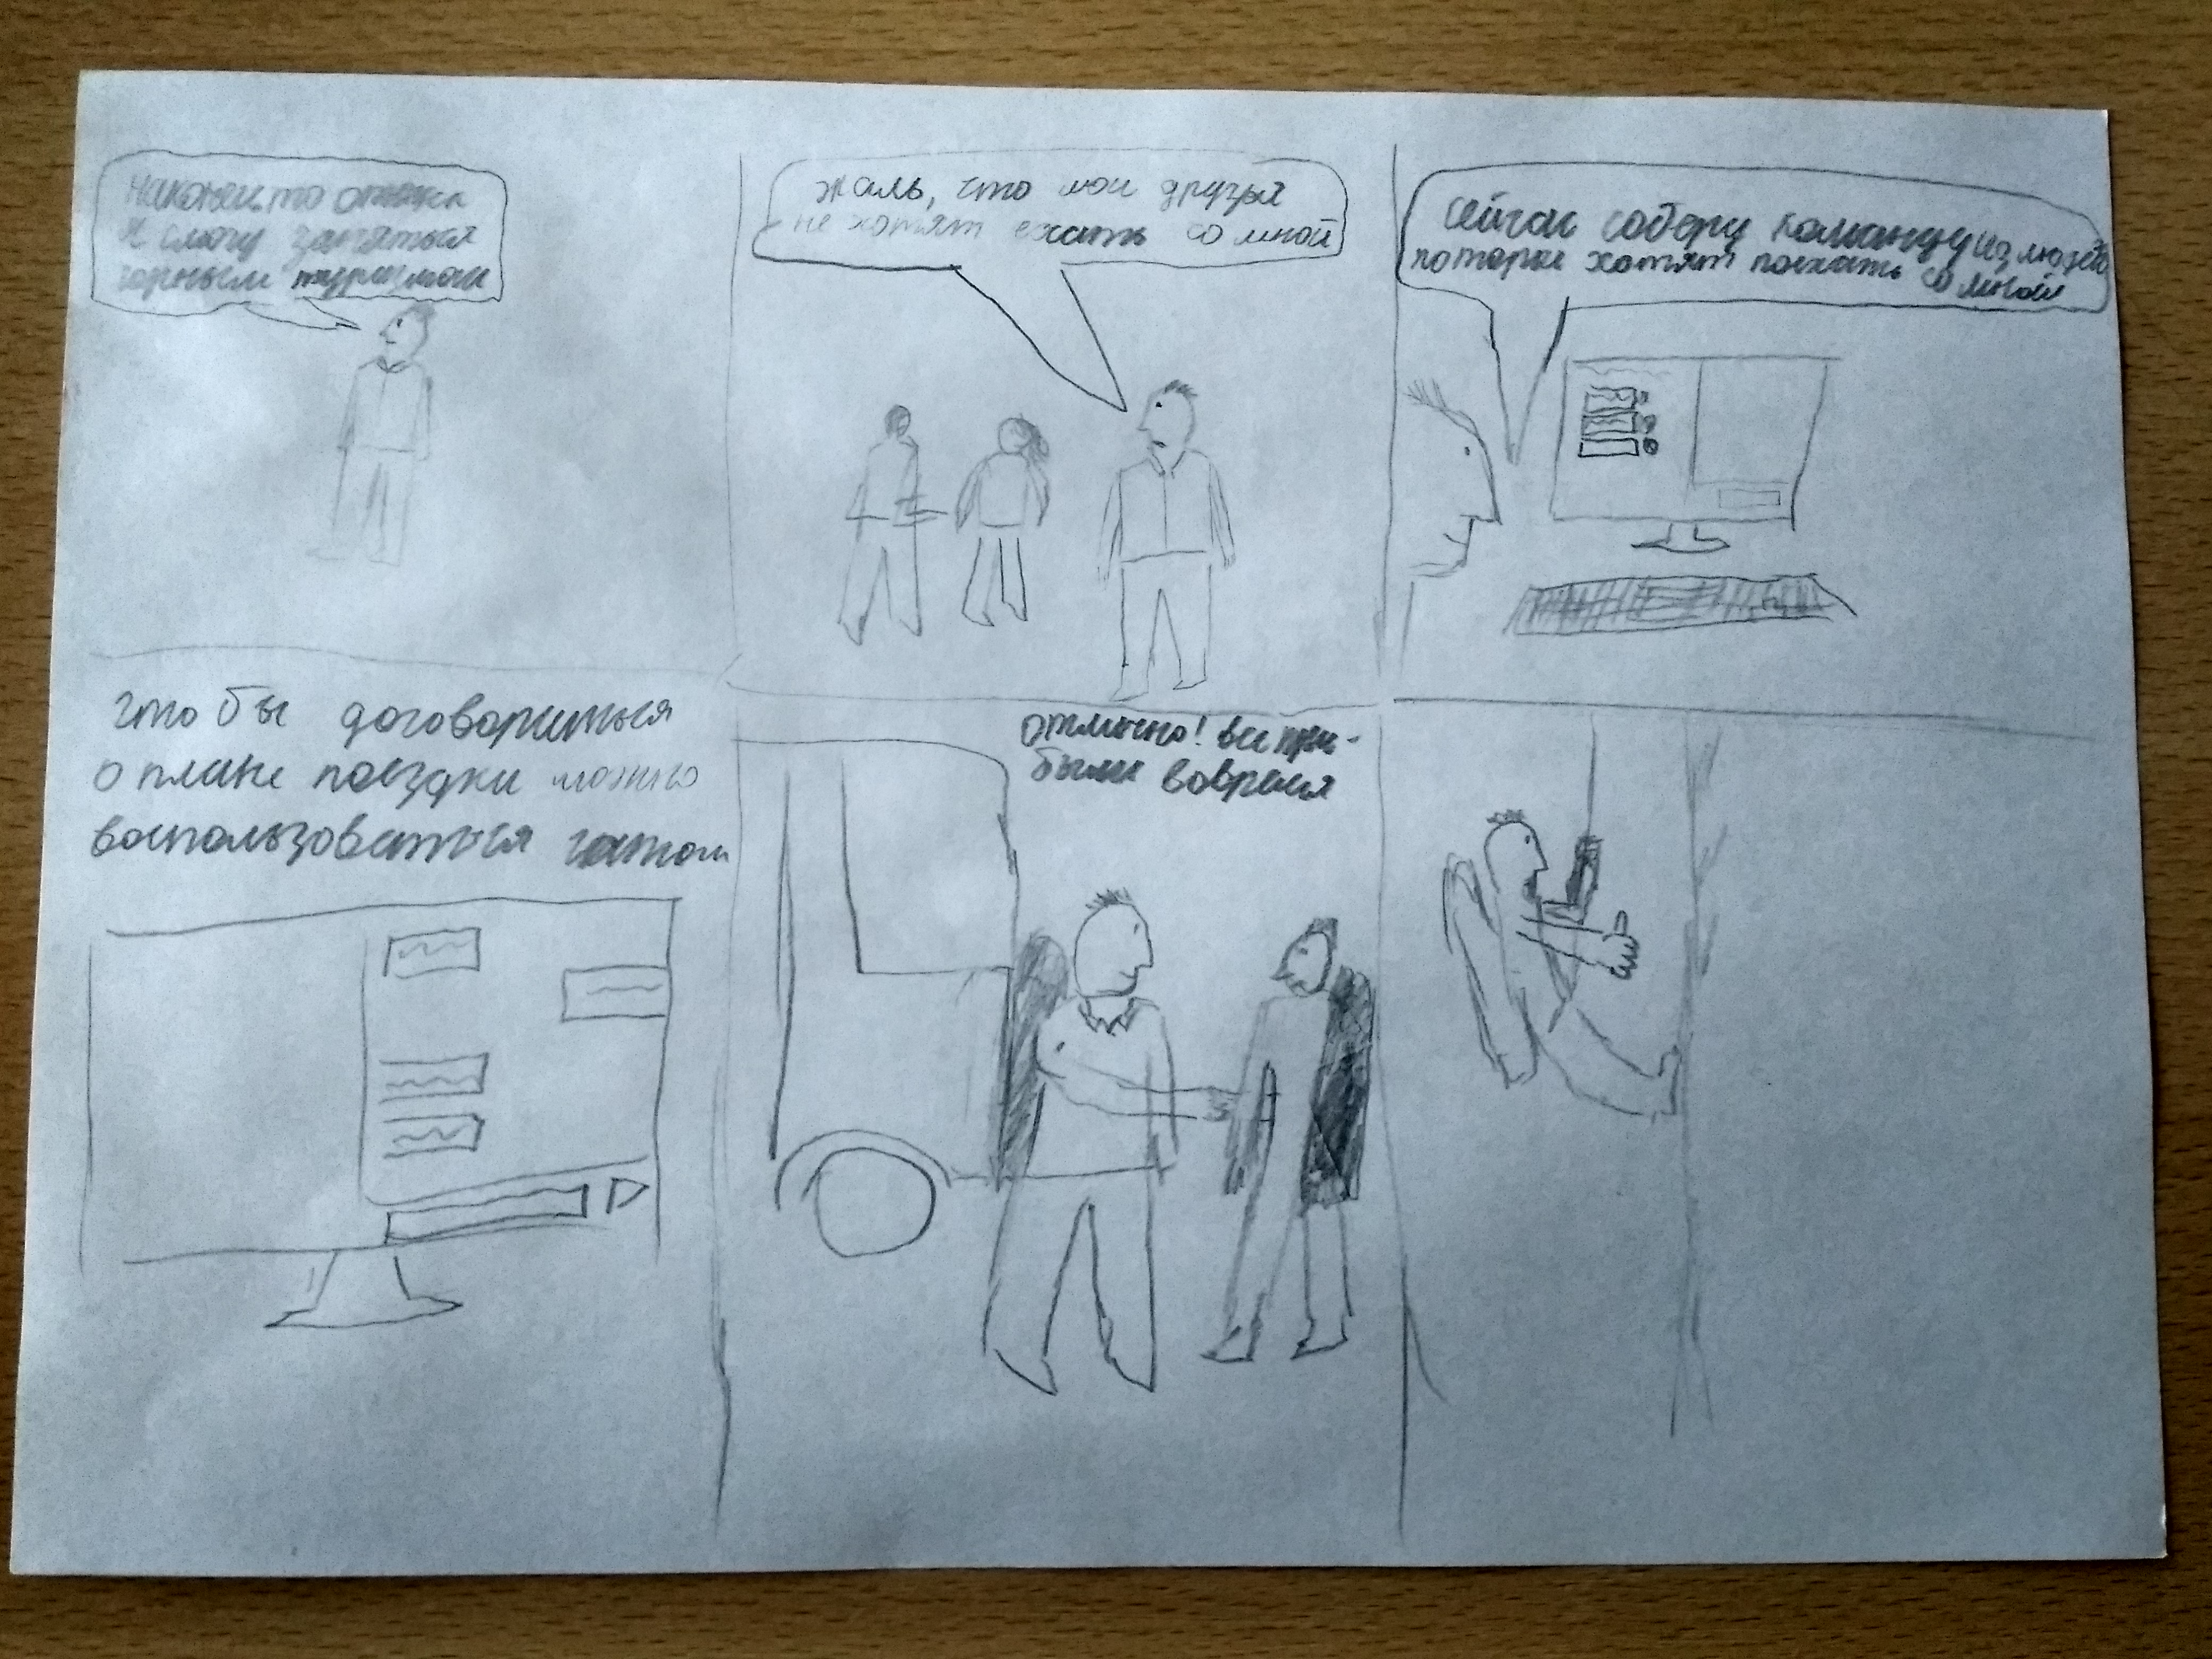 наконец то отпуск
я смогу заняться
горным туризмом
жаль, что мои друзья
не хотят ехать со мной
сейчас соберу команду из людей
которые хотят поехать со мной
что бы договориться
о плане поездки можно
воспользоваться чатом
отлично! все при-
были вовремя